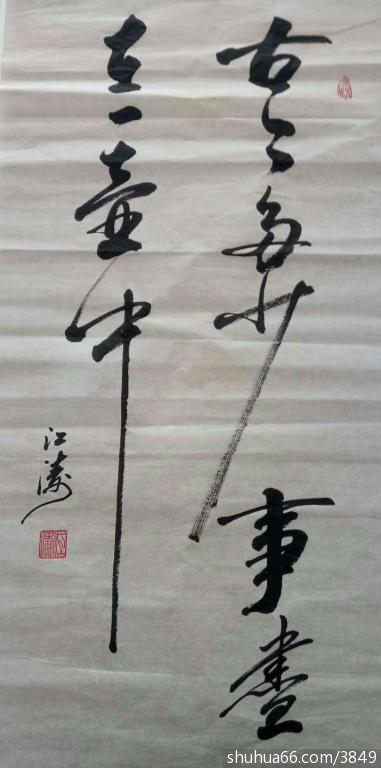 古今多少事盡
在一壺中
江濤
shuhua66.com/3849